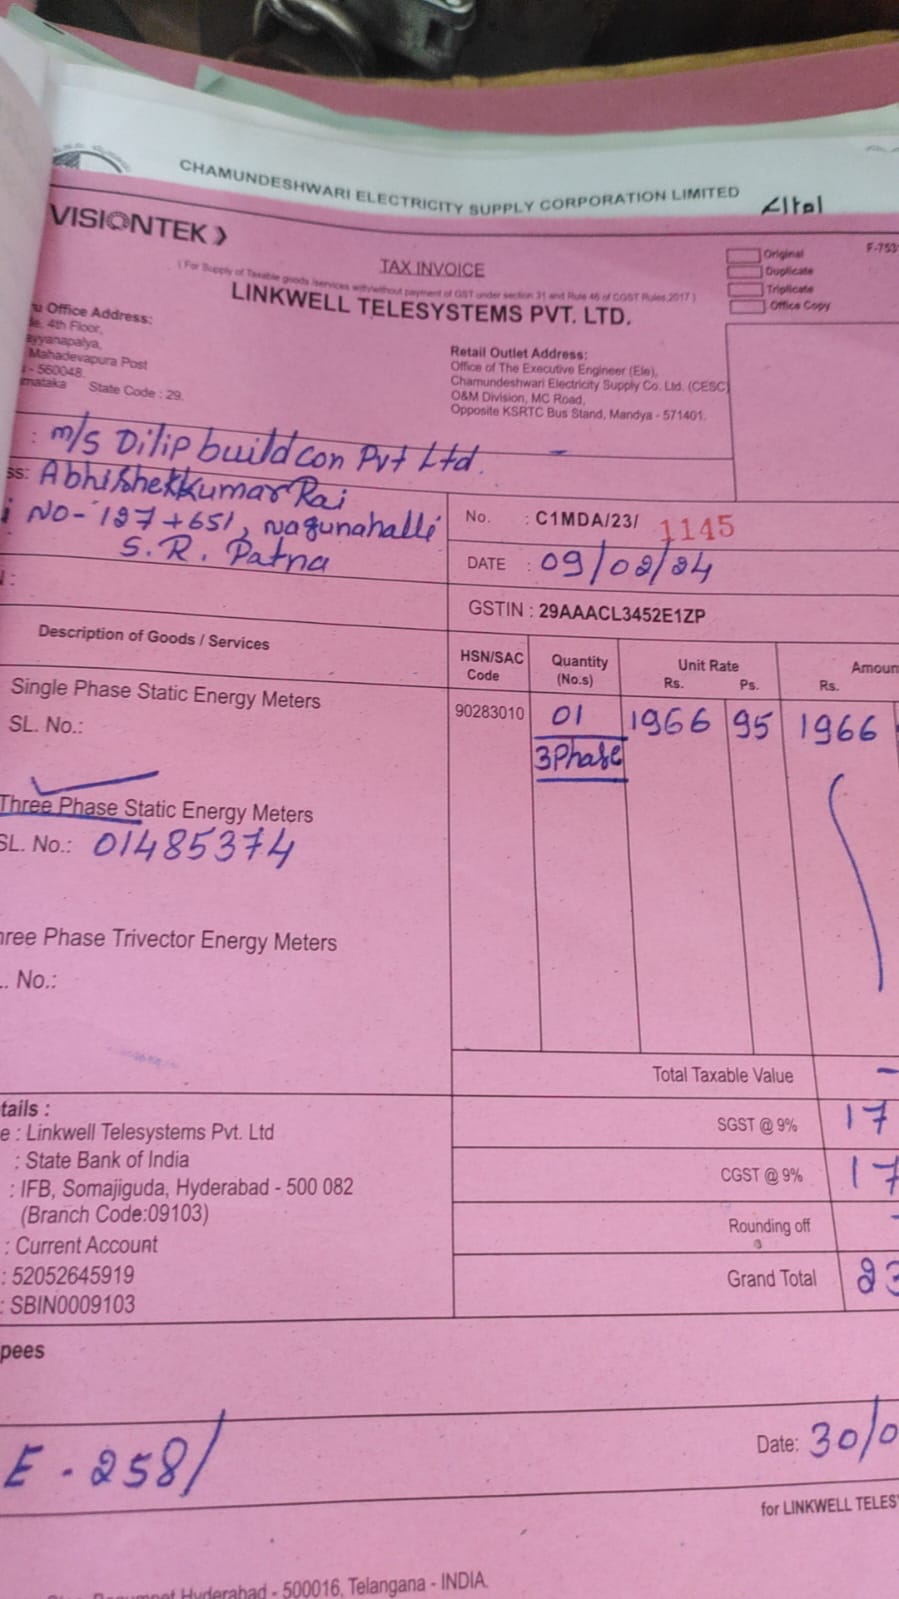 CHAMUNDESHWARI ELECTRICITY SUPPLY CORPORATION LIMITED
VISIONTEK
TAX INVOICE
F-753
( For Supply of Taxable goods /services with/without payment of GST under section 31 and Rule 46 of CGST Rules,2017 )
LINKWELL TELESYSTEMS PVT. LTD.
Original
Duplicate
Triplicate
Office Copy
Office Address:
4th Floor,
Mahadevapura Post
- 560048.
State Code : 29.
Retail Outlet Address:
Office of The Executive Engineer (Ele),
Chamundeshwari Electricity Supply Co. Ltd. (CESC)
O&M Division, MC Road,
Opposite KSRTC Bus Stand, Mandya - 571401.
: M/S Dilip buildcon Pvt Ltd.
ss: Abhishekkumar Rai
NO- 127+651, Nagunahalli
S. R. Patna
No. : C1MDA/23/ 1145
DATE : 09/02/24
GSTIN : 29AAACL3452E1ZP
Description of Goods / Services
HSN/SAC Code
Quantity (No.s)
Unit Rate
Rs. Ps.
Amoun
Rs.
Single Phase Static Energy Meters
SL. No.:
90283010 01 1966 95 1966
3 Phase
Three Phase Static Energy Meters
SL. No.: 01485374
hree Phase Trivector Energy Meters
. No.:
Total Taxable Value -
SGST @ 9% 17
CGST @ 9% 17
Rounding off -
Grand Total 23
tails :
e : Linkwell Telesystems Pvt. Ltd
: State Bank of India
: IFB, Somajiguda, Hyderabad - 500 082
(Branch Code:09103)
: Current Account
: 52052645919
: SBIN0009103
pees
E - 258/
Date: 30/0
for LINKWELL TELES
Hyderabad - 500016, Telangana - INDIA.